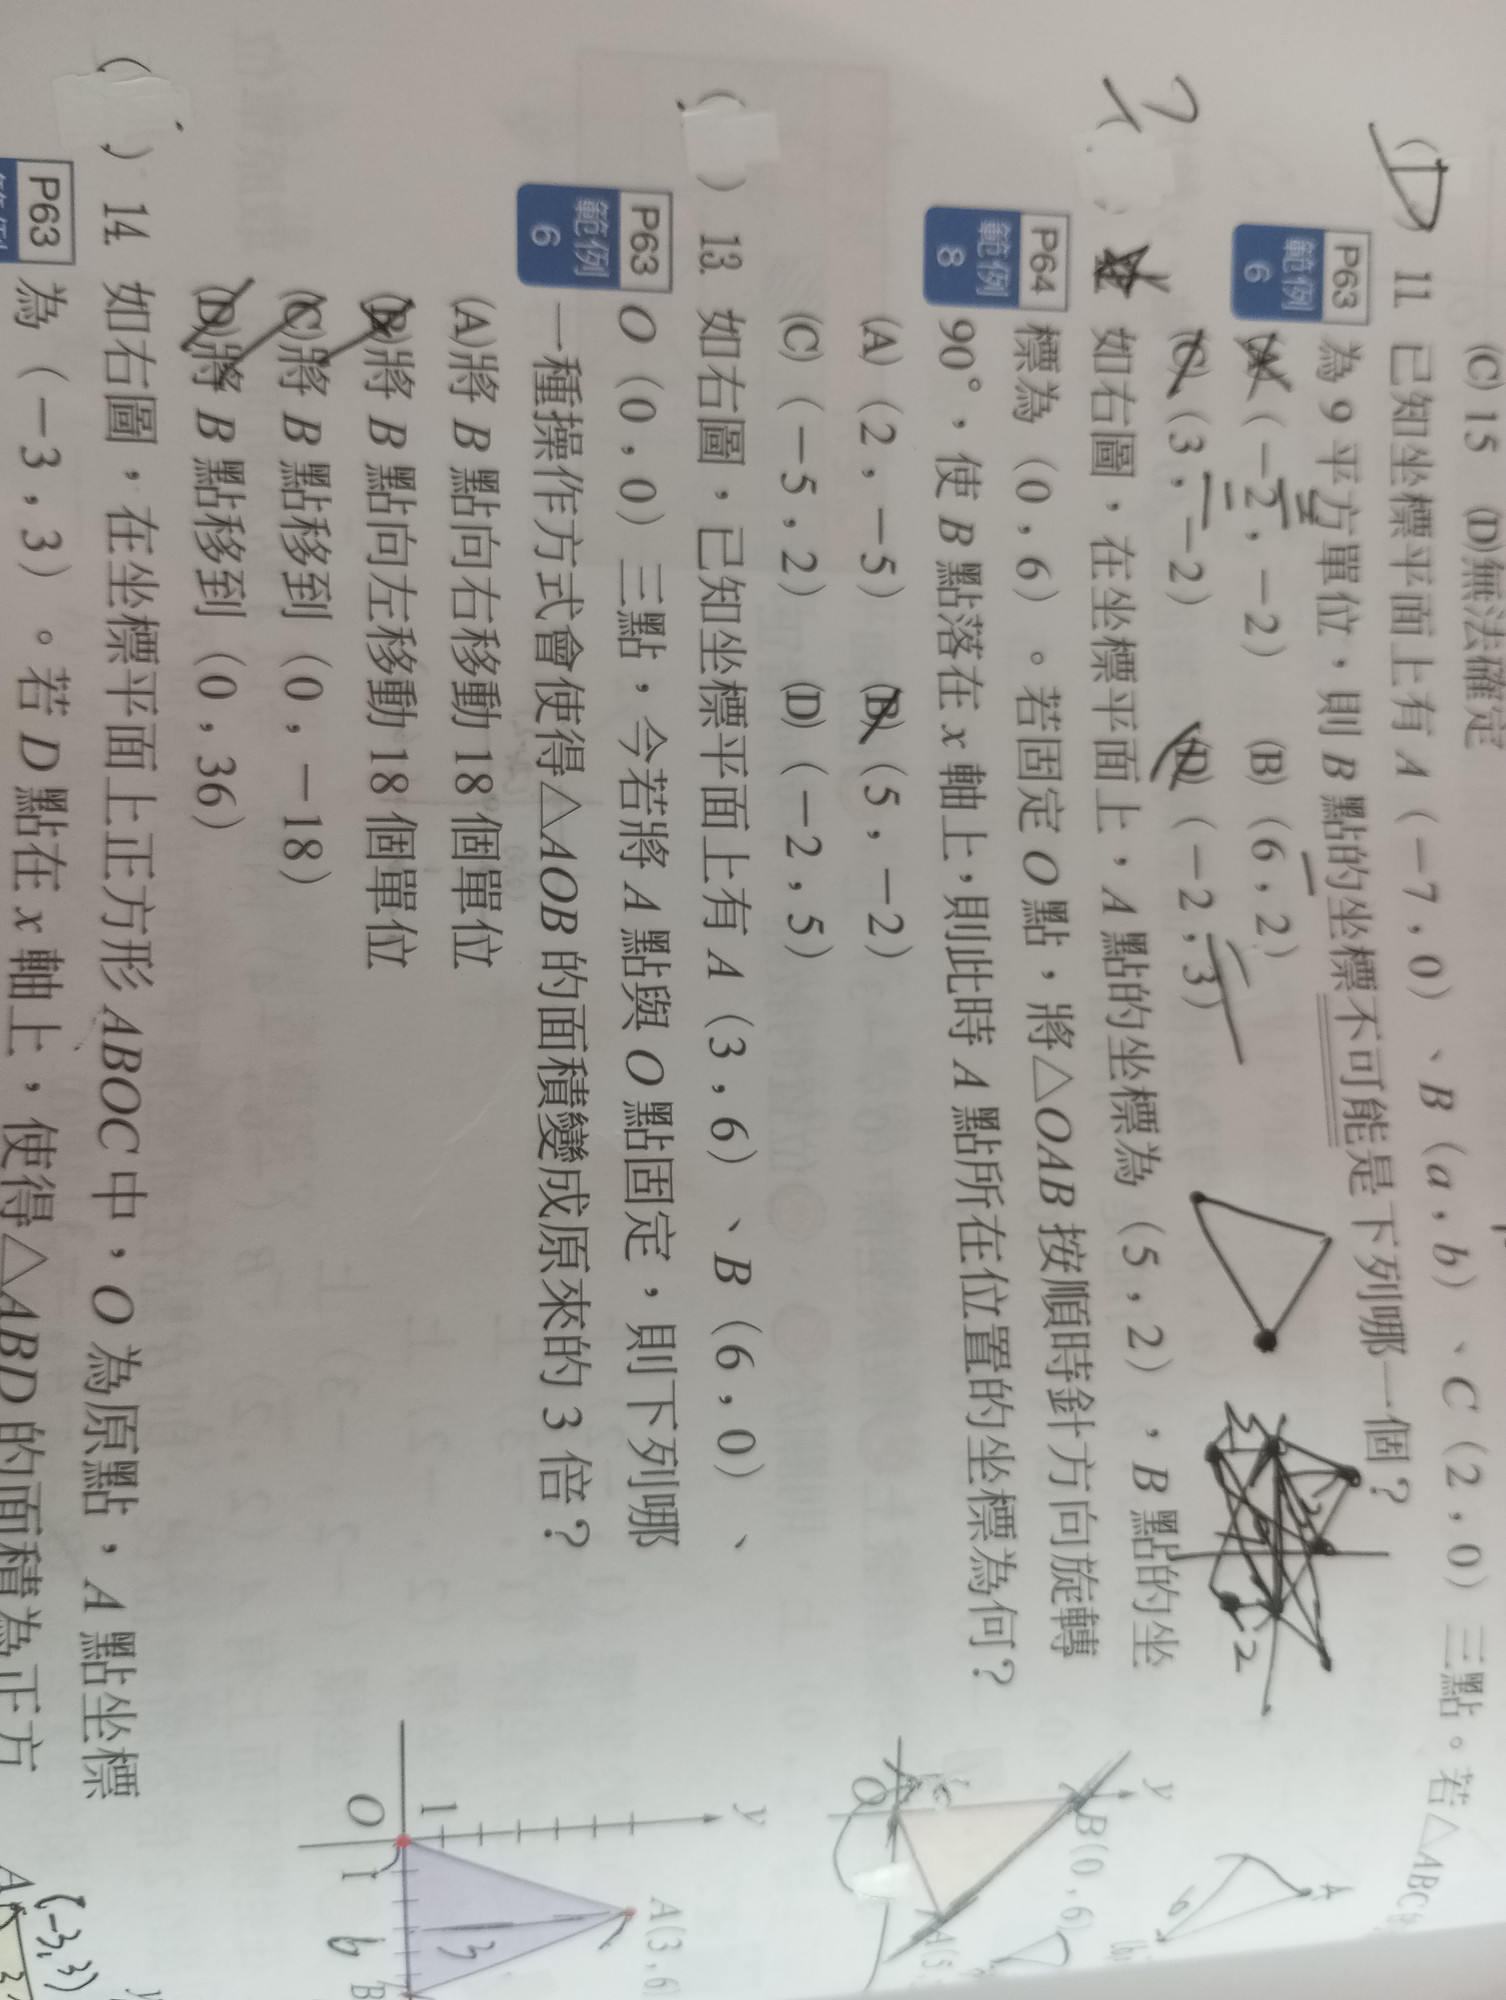 (C) 15 (D)無法確定
(D) 11 已知坐標平面上有 A（－7，0）、B（a，b）、C（2，0）三點。若△ABC
P63 範例 6
為 9 平方單位，則 B 點的坐標不可能是下列哪一個？
(A)（－2，－2） (B)（6，2）
(C)（3，－2） (D)（－2，3）
如右圖，在坐標平面上，A 點的坐標為（5，2），B 點的坐
P64 範例 8
標為（0，6）。若固定 O 點，將△OAB 按順時針方向旋轉
90°，使 B 點落在 x 軸上，則此時 A 點所在位置的坐標為何？
(A)（2，－5） (B)（5，－2）
(C)（－5，2） (D)（－2，5）
y
B(0，6)
A(5，
O
2
A
6
( ) 13. 如右圖，已知坐標平面上有 A（3，6）、B（6，0）、
P63 範例 6
O（0，0）三點，今若將 A 點與 O 點固定，則下列哪
一種操作方式會使得△AOB 的面積變成原來的 3 倍？
(A)將 B 點向右移動 18 個單位
(B)將 B 點向左移動 18 個單位
(C)將 B 點移到（0，－18）
(D)將 B 點移到（0，36）
y
A(3，6)
1
O
1
6
3
B
( ) 14. 如右圖，在坐標平面上正方形 ABOC 中，O 為原點，A 點坐標
P63
為（－3，3）。若 D 點在 x 軸上，使得△ABD 的面積為正方
(-3,3)
A
y